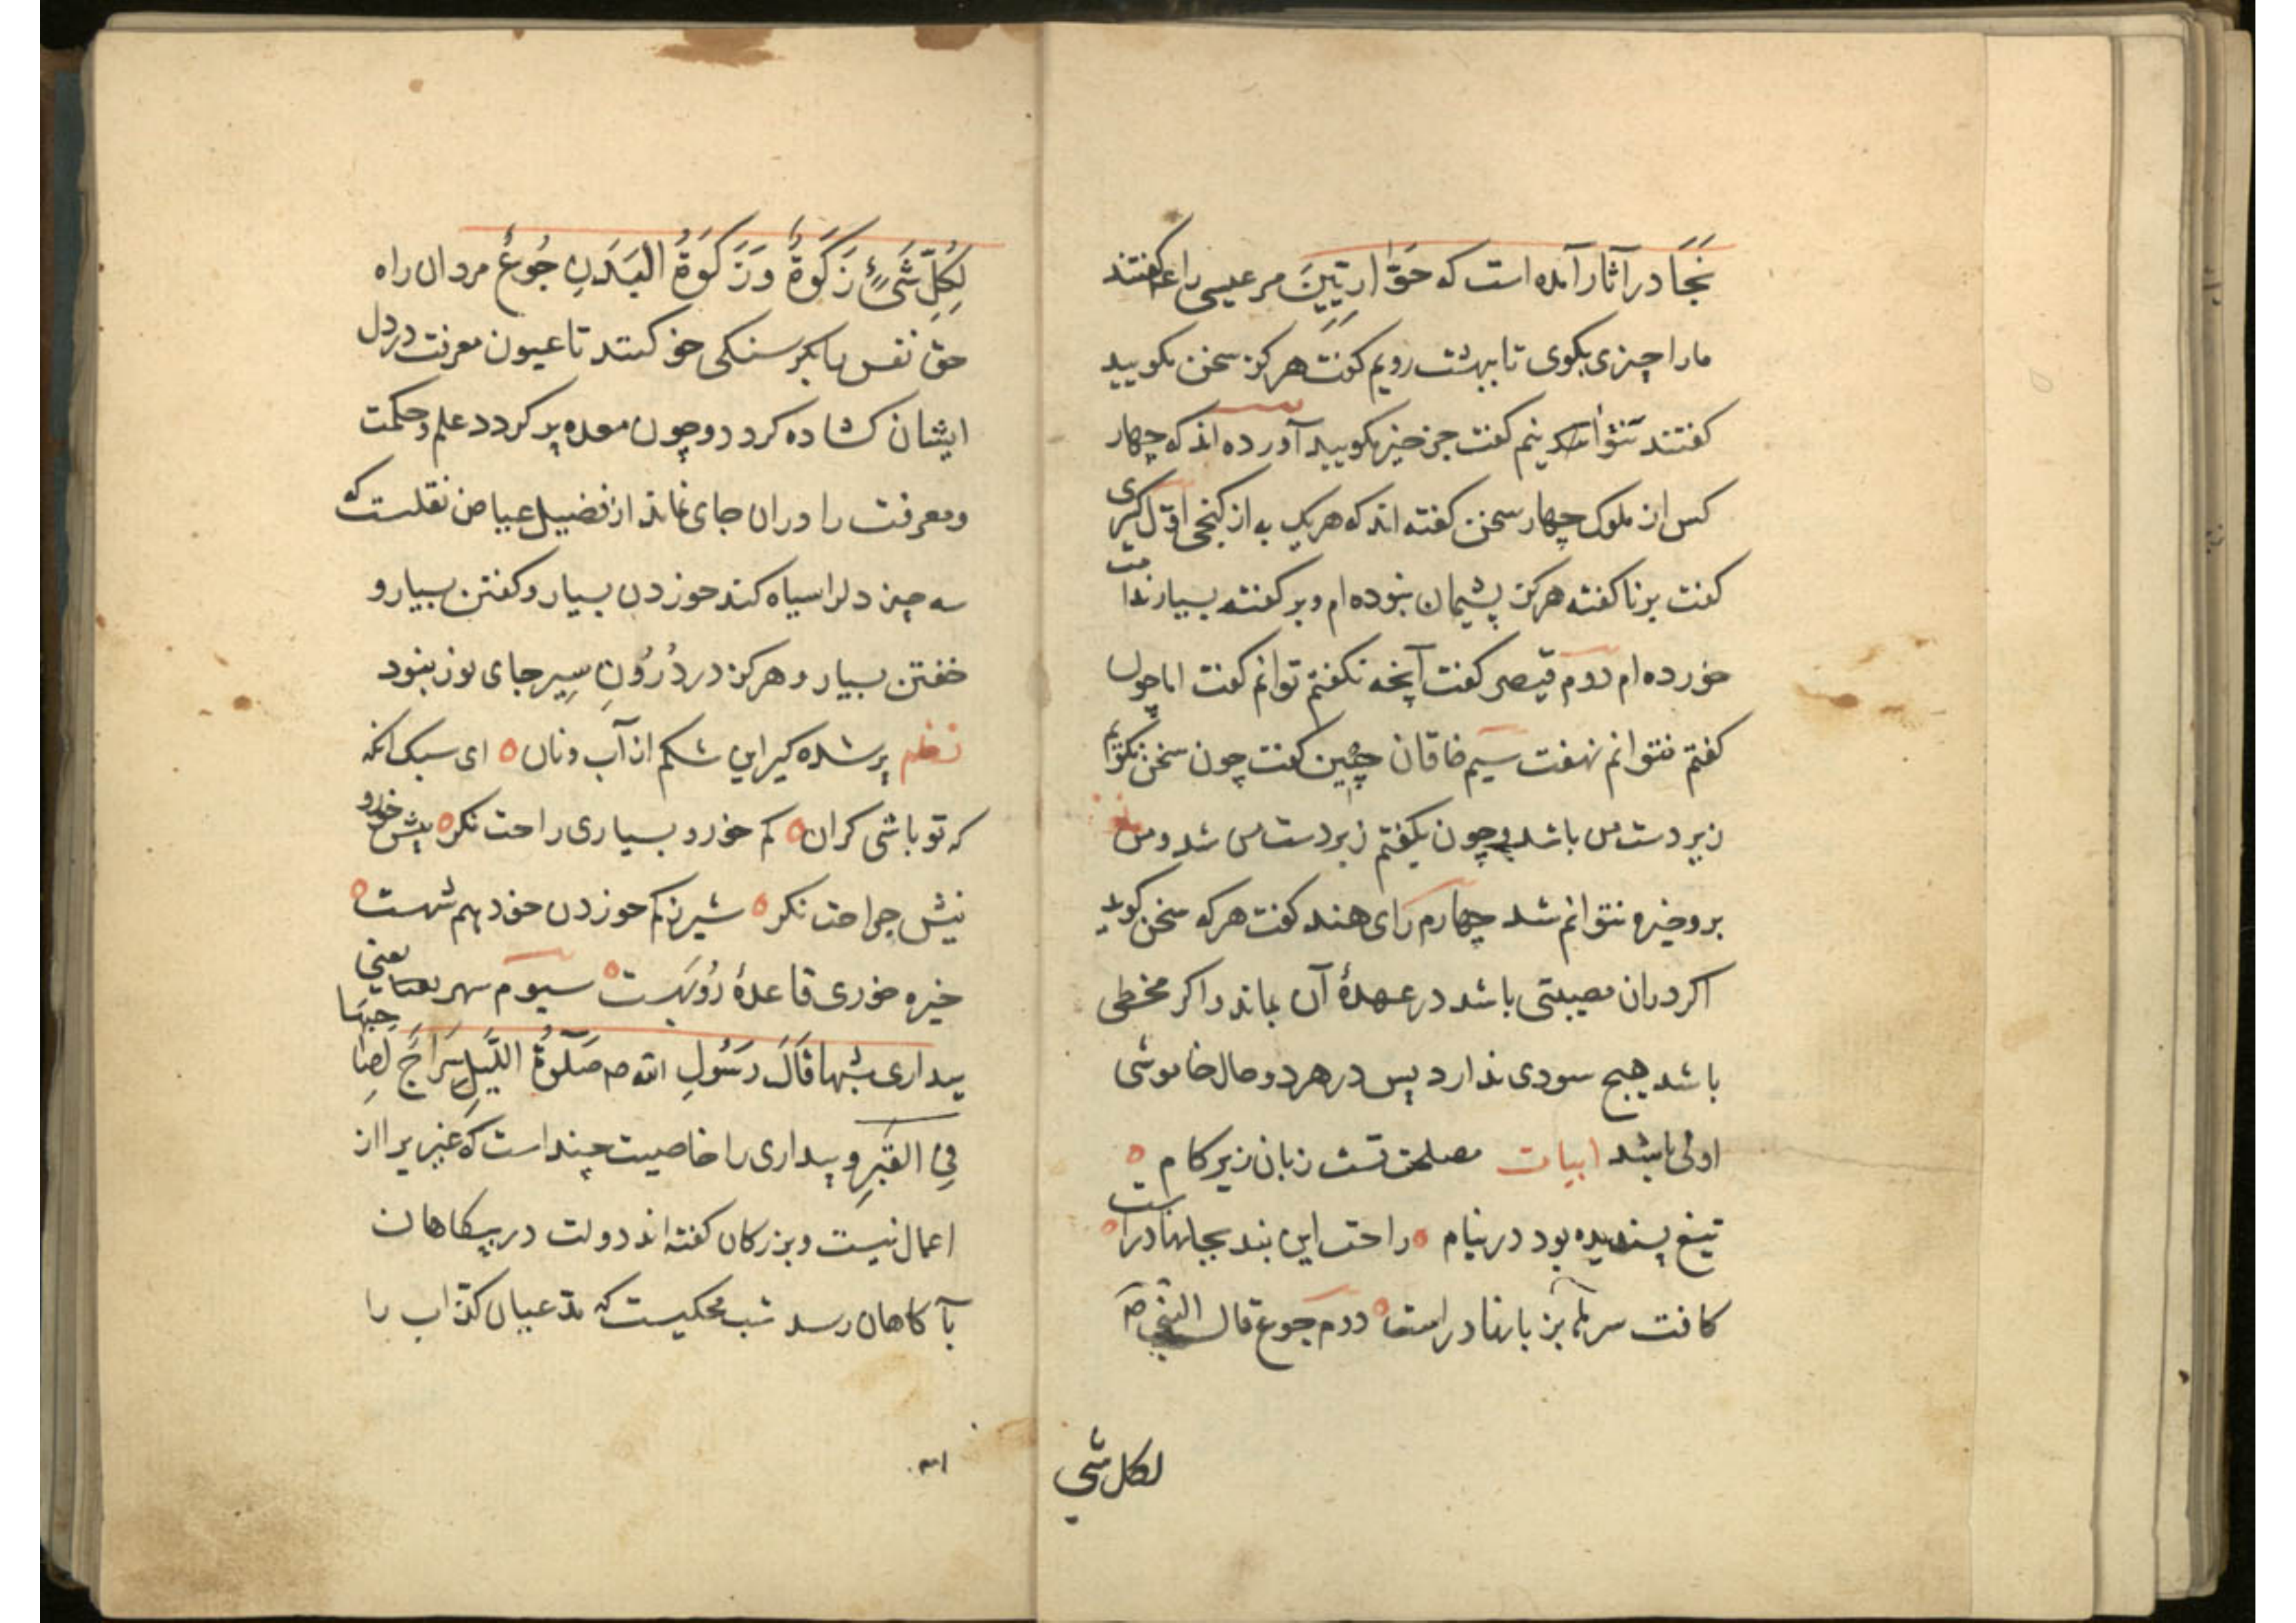 نَجَا در آثار آمده است که حَوَّارِیِّینَ مر عیسی را ع کفتند
مارا چیزی بکوی تا ببهشت رویم کفت هرکز سخن مکویید
کفتند نتوانیم کفت جز خیر مکویید آورده اند که چهار
کس از ملوک چهار سخن کفته اند که هر یک به از کنجی اوّل کسری
کفت بر ناکفته هرکز پشیمان نبوده ام و بر کفته بسیار ندامت
خورده ام دوم قیصر کفت آنچه نکفتم توانم کفت اما چون
کفتم نتوانم نهفت سیم خاقان چین کفت چون سخن نکویم
زیر دست من باشد و چون بکفتم زبر دست من شد و من
برو خیره نتوانم شد چهارم رای هند کفت هر که سخن کوید
اکر در ان مصیبتی باشد در عهدهٔ آن بماند و اکر مخطی
باشد هیچ سودی ندارد پس در هر دو حال خاموشی
اولی باشد ابیات مصلحت تست زبان زیر کام
تیغ پسندیده بود در نیام راحت این پند بجانها دراست
کافت سرها بزبانها دراست دوم جوع قال النبی ص
لکل شی
لِکُلِّ شَیْءٍ زَکَوةٌ وَزَکَوةُ الْبَدَنِ جُوعٌ مردان راه
حق نفس را بکرسنکی خو کنند تا عیون معرفت در دل
ایشان کشاده کردد و چون معده پر کردد علم و حکمت
و معرفت را در ان جای نماند از فضیل عیاض نقلست که
سه چیز دلرا سیاه کند خوردن بسیار و کفتن بسیار و
خفتن بسیار و هرکز در دُرُونِ سِیر جای نور نبود
نظم پر شده کیر این شکم از آب و نان ای سبک آنکه
که تو باشی کران کم خور و بسیاری راحت نکر بیش خور و
نیش جراحت نکر شیر ز کم خوردن خود بهم شهست
خیره خوری قاعدهٔ رُوبَهست سیوم سهر یعنی
بیداری شبها قَالَ رَسُولِ الله ص صَلَوةُ اللَّیلِ سِرَاجٌ لِصَاحِبِهَا
فِی القَبْرِ و بیداری را خاصیت چند است که غیر برا از
اعمال نیست و بزرکان کفته اند دولت در بیکاهان
بآکاهان رسد شب محکیست که مدّعیان کذّاب را